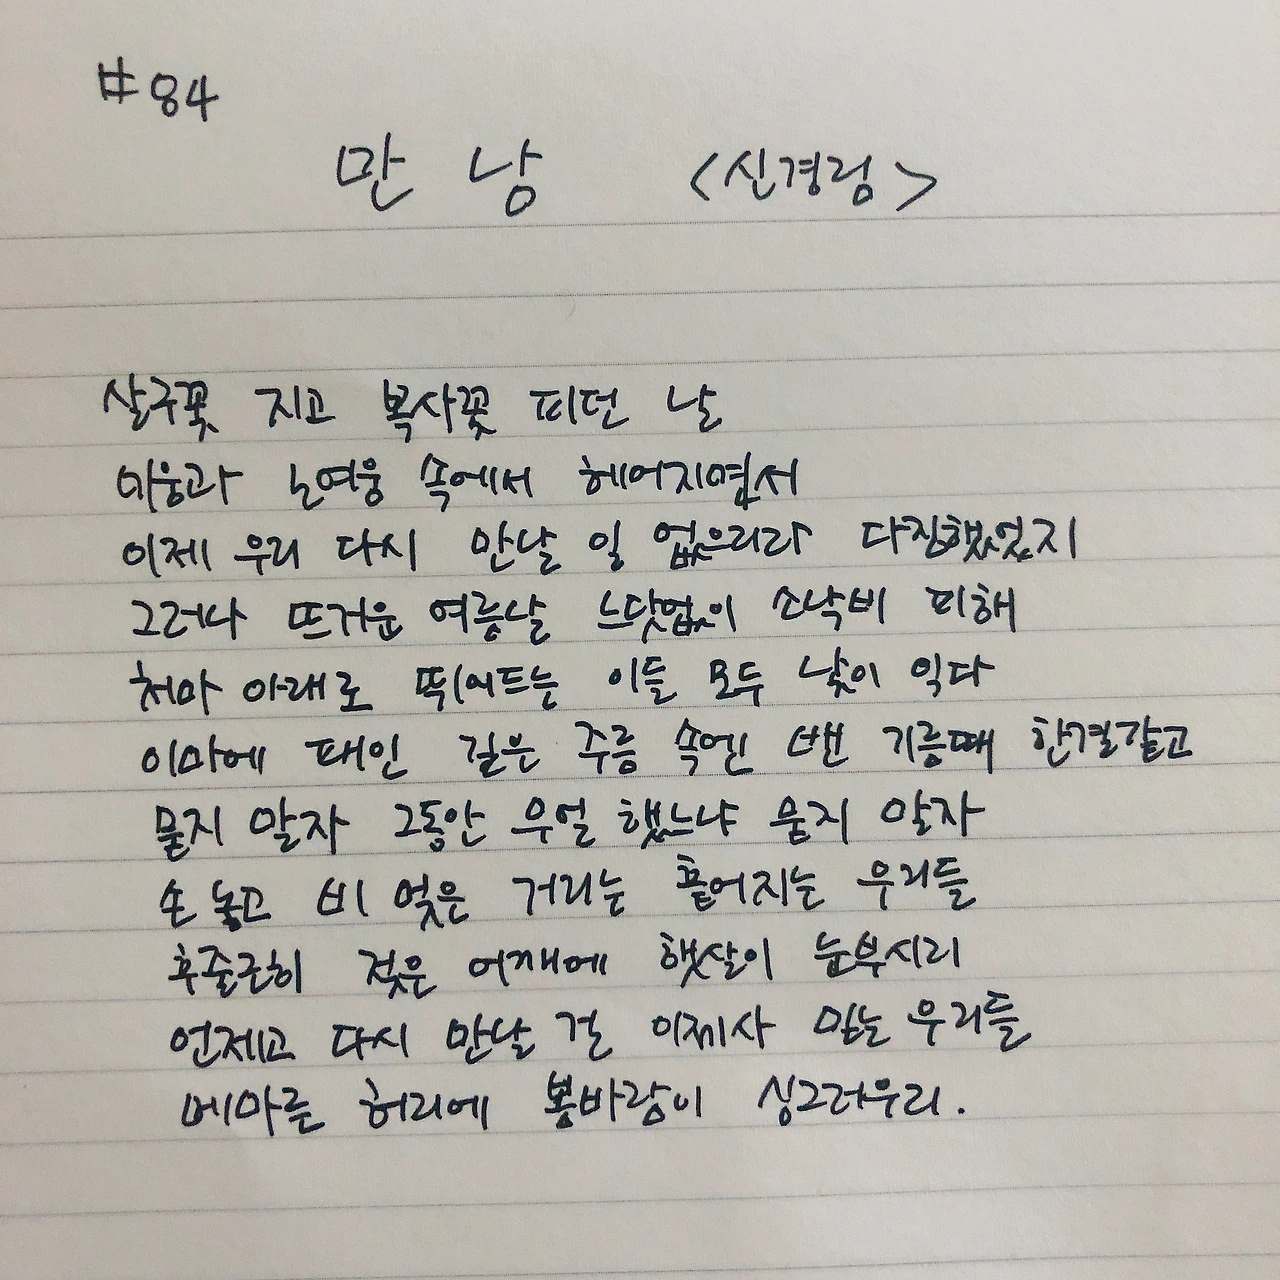 #84
만 남 <신경림>
살구꽃 지고 복사꽃 피던 날
미움과 노여움 속에서 헤어지면서
이제 우리 다시 만날 일 없으리라 다짐했었지
그러나 뜨거운 여름날 느닷없이 소낙비 피해
처마 아래로 뛰어드는 이들 모두 낯이 익다
이마에 패인 깊은 주름 속엔 밴 기름때 한결같고
묻지 말자 그동안 무얼 했느냐 묻지 말자
손 놓고 비 멎은 거리로 흩어지는 우리들
후줄근히 젖은 어깨에 햇살이 눈부시리
언제고 다시 만날 걸 이제사 믿는 우리들
메마른 허리에 봄바람이 싱그러우리.